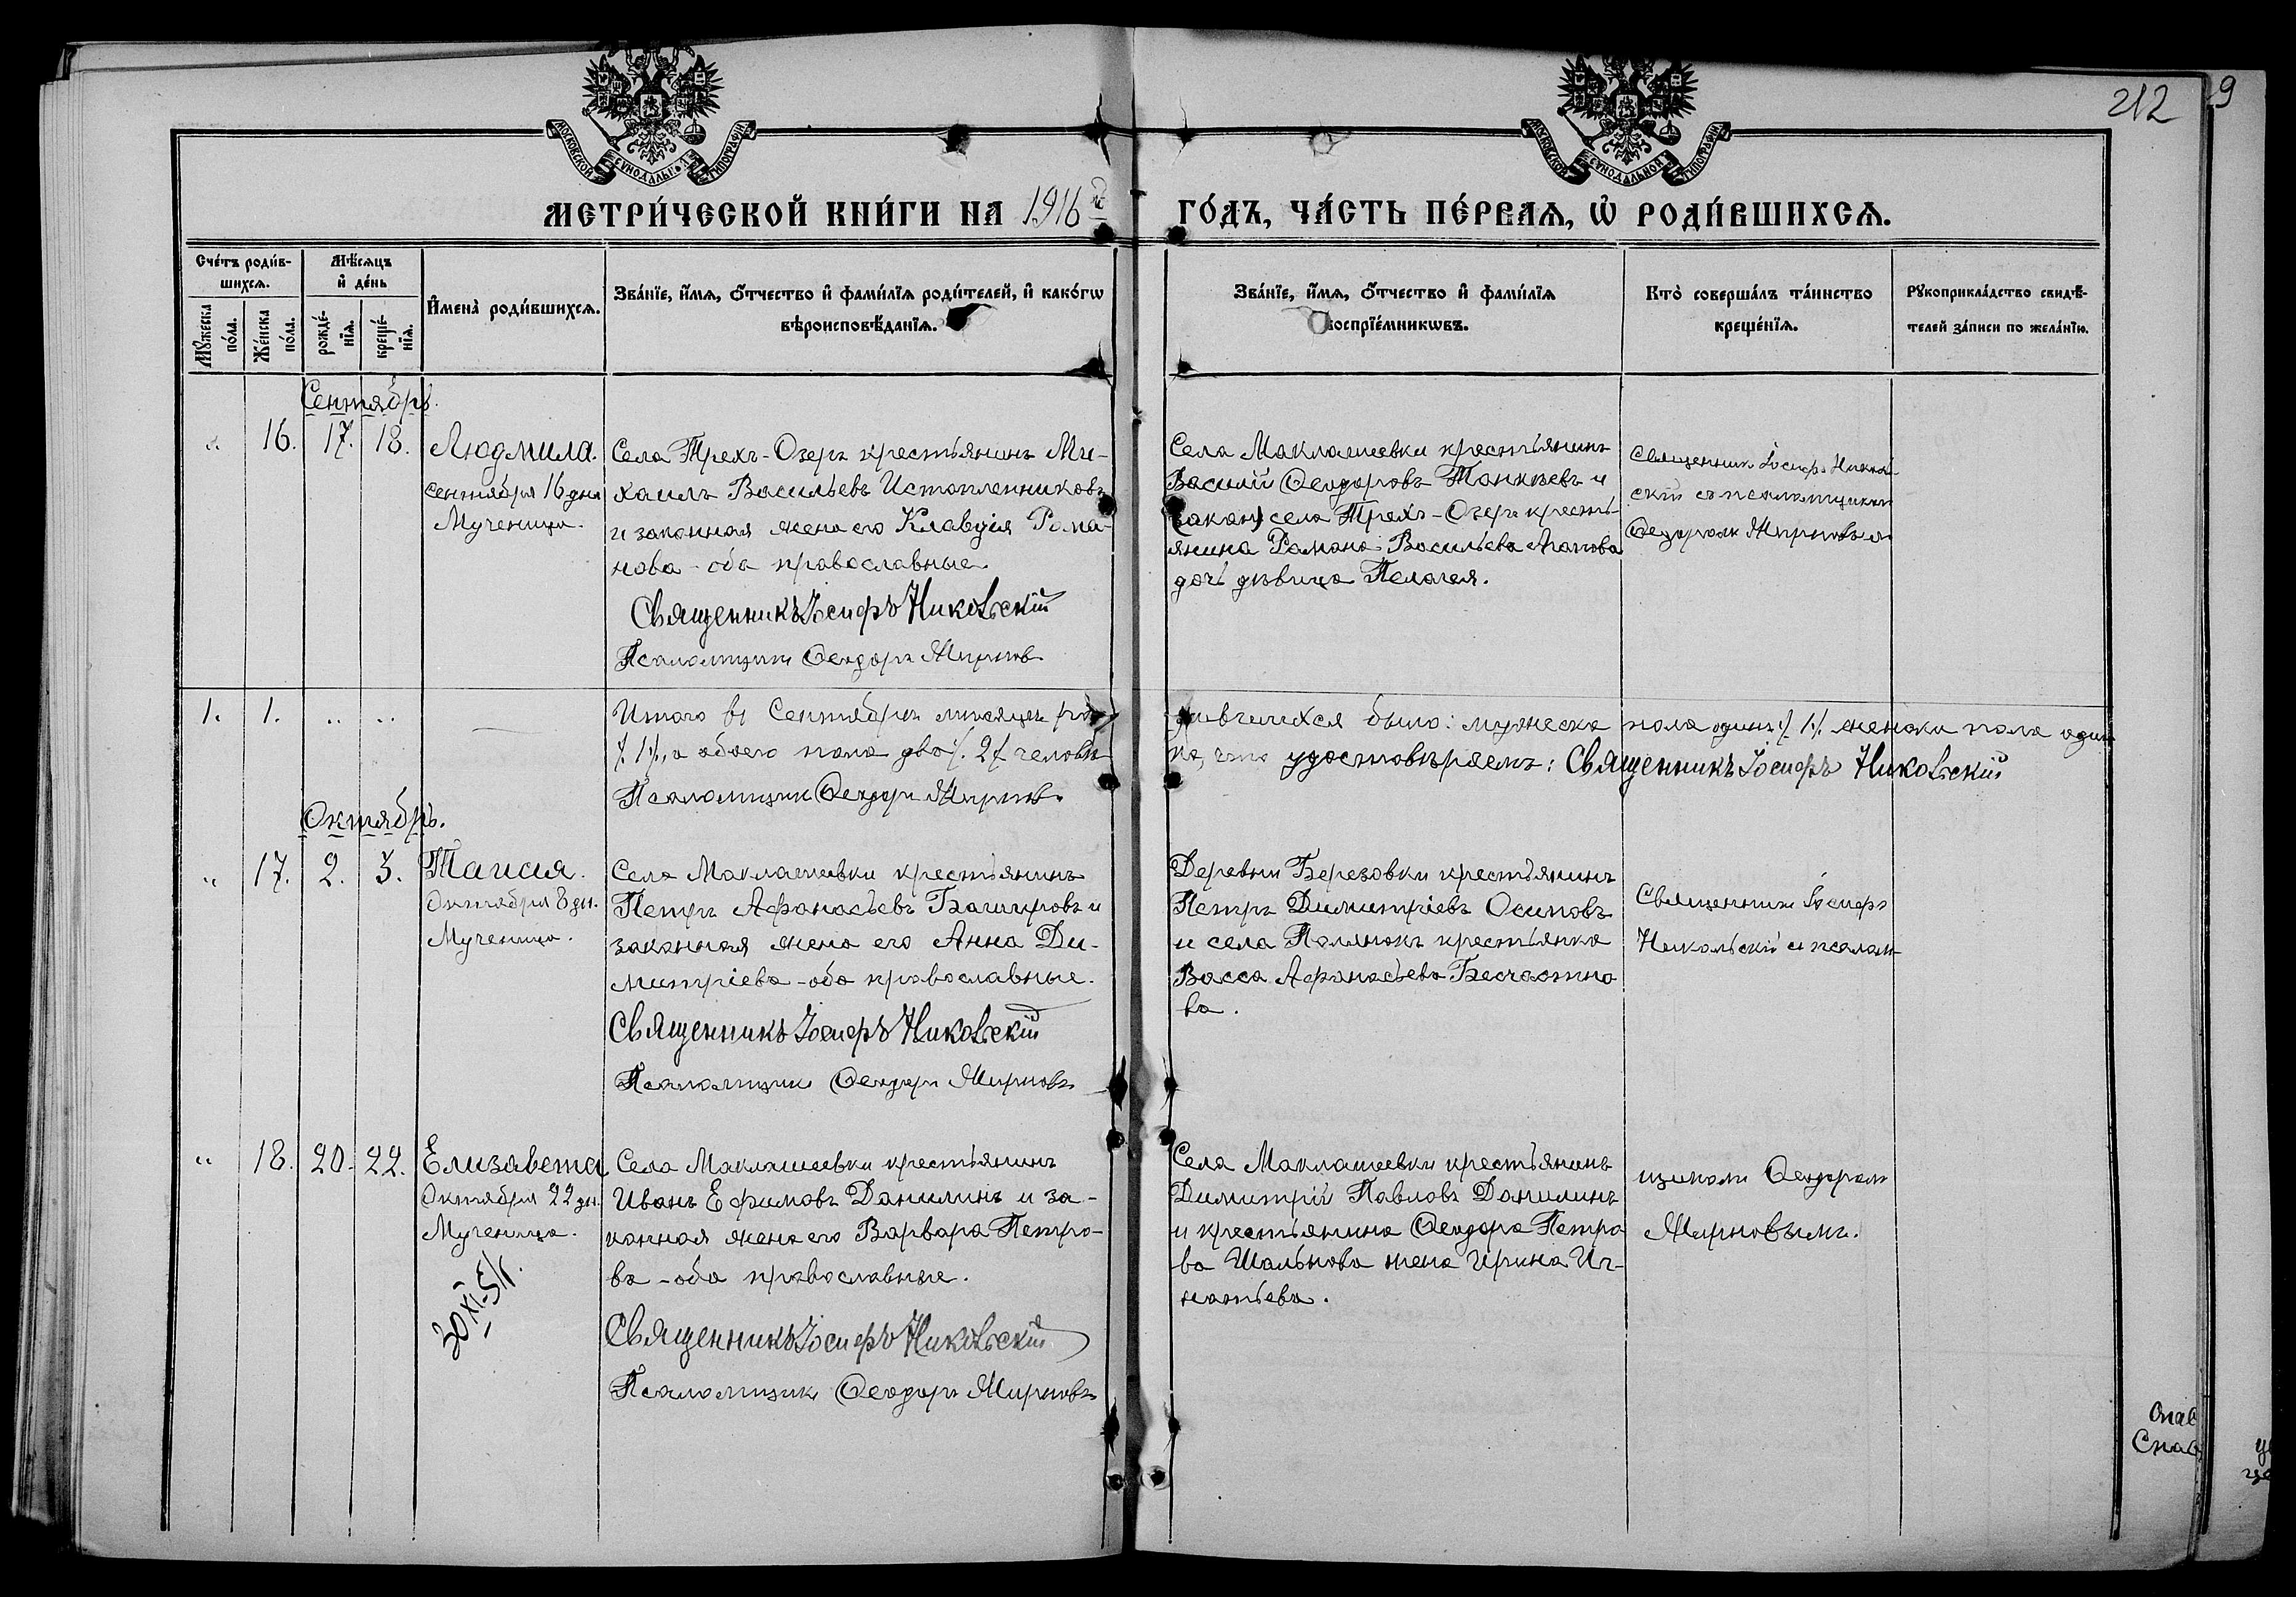 212
9
МОСКОВСКОЙ СѴНОДАЛЬНОЙ ТИПОГРАФІИ
МОСКОВСКОЙ СѴНОДАЛЬНОЙ ТИПОГРАФІИ
МЕТРИ́ЧЕСКОЙ КНИ́ГИ НА 1916й ГО́ДЪ, ЧА́СТЬ ПЕ́РВАЯ, Ѡ҆ РОДИ́ВШИХСЯ.
Сче́тъ роди́в-
шихся.
Мѣ́сяцъ
и҆ де́нь
Мꙋ́жеска
по́ла.
Же́нска
по́ла.
рожде́-
нїя.
креще́-
нїя.
И҆мена̀ роди́вшихся.
Зва́нїе, и҆́мя, ѻ҆́тчество и҆ фами́лїя роди́телей, и҆ како́гѡ
вѣроисповѣ́данїя.
Зва́нїе, и҆́мя, ѻ҆́тчество и҆ фами́лїя
воспрїе́мникѡвъ.
Кто̀ соверша́лъ та́инство
креще́нїя.
Рꙋкоприкла́дство свидѣ́-
телей за́писи по жела́нїю.
Сентябрь.
" 16. 17. 18. Людмила.
сентября 16 дня
Мученица.
Села Трехъ-Озеръ крестьянинъ Ми-
хаилъ Васильевъ Истопленниковъ
и законная жена его Клавдія Рома-
нова - оба православные.
Священникъ Іосифъ Никольскій
Псаломщикъ Ѳеодоръ Жирновъ
Села Маклашевки крестьянинъ
Василій Ѳеодоровъ и
села Трехъ-Озеръ кресть-
янина Романа Васильева Агапова
дочь дѣвица Пелагея.
Священникъ Іосифъ Николь-
скій съ псаломщикомъ
Ѳедоромъ Жирновымъ
1. 1. " "
Итого въ Сентябрѣ мѣсяцѣ родившихся было: мужеска пола одинъ /.1/. женска пола одинъ
/.1/., а обоего пола два /.2/. человѣка, что удостовѣряемъ: Священникъ Іосифъ Никольскій
Псаломщикъ Ѳеодоръ Жирновъ.
Октябрь.
" 17. 2. 3. Таисія.
Октября 8 дн.
Мученица.
Села Маклашевки крестьянинъ
Петръ Афанасьевъ Башировъ и
законная жена его Анна Ди-
митріева - оба православные.
Священникъ Іосифъ Никольскій
Псаломщикъ Ѳеодоръ Жирновъ
Деревни Березовки крестьянинъ
Петръ Димитріевъ Осиповъ
и села Полянокъ крестьянка
Васса Афанасьева Бесчастно
ва.
Священникъ Іосифъ
Никольскій съ псалом-
" 18. 20. 22. Елизавета
Октября 22 дн.
Мученица.
30 XI-51г.
Села Маклашевки крестьянинъ
Иванъ Ефимовъ Данилинъ и за-
конная жена его Варвара Петро-
ва - оба православные.
Священникъ Іосифъ Никольскій
Псаломщикъ Ѳеодоръ Жирновъ
Села Маклашевки крестьянинъ
Димитрій Павловъ Данилинъ
и крестьянина Ѳеодора Петро
ва Шальнова жена Ирина Иг-
натьева.
щикомъ Ѳеодоромъ
Жирновымъ.